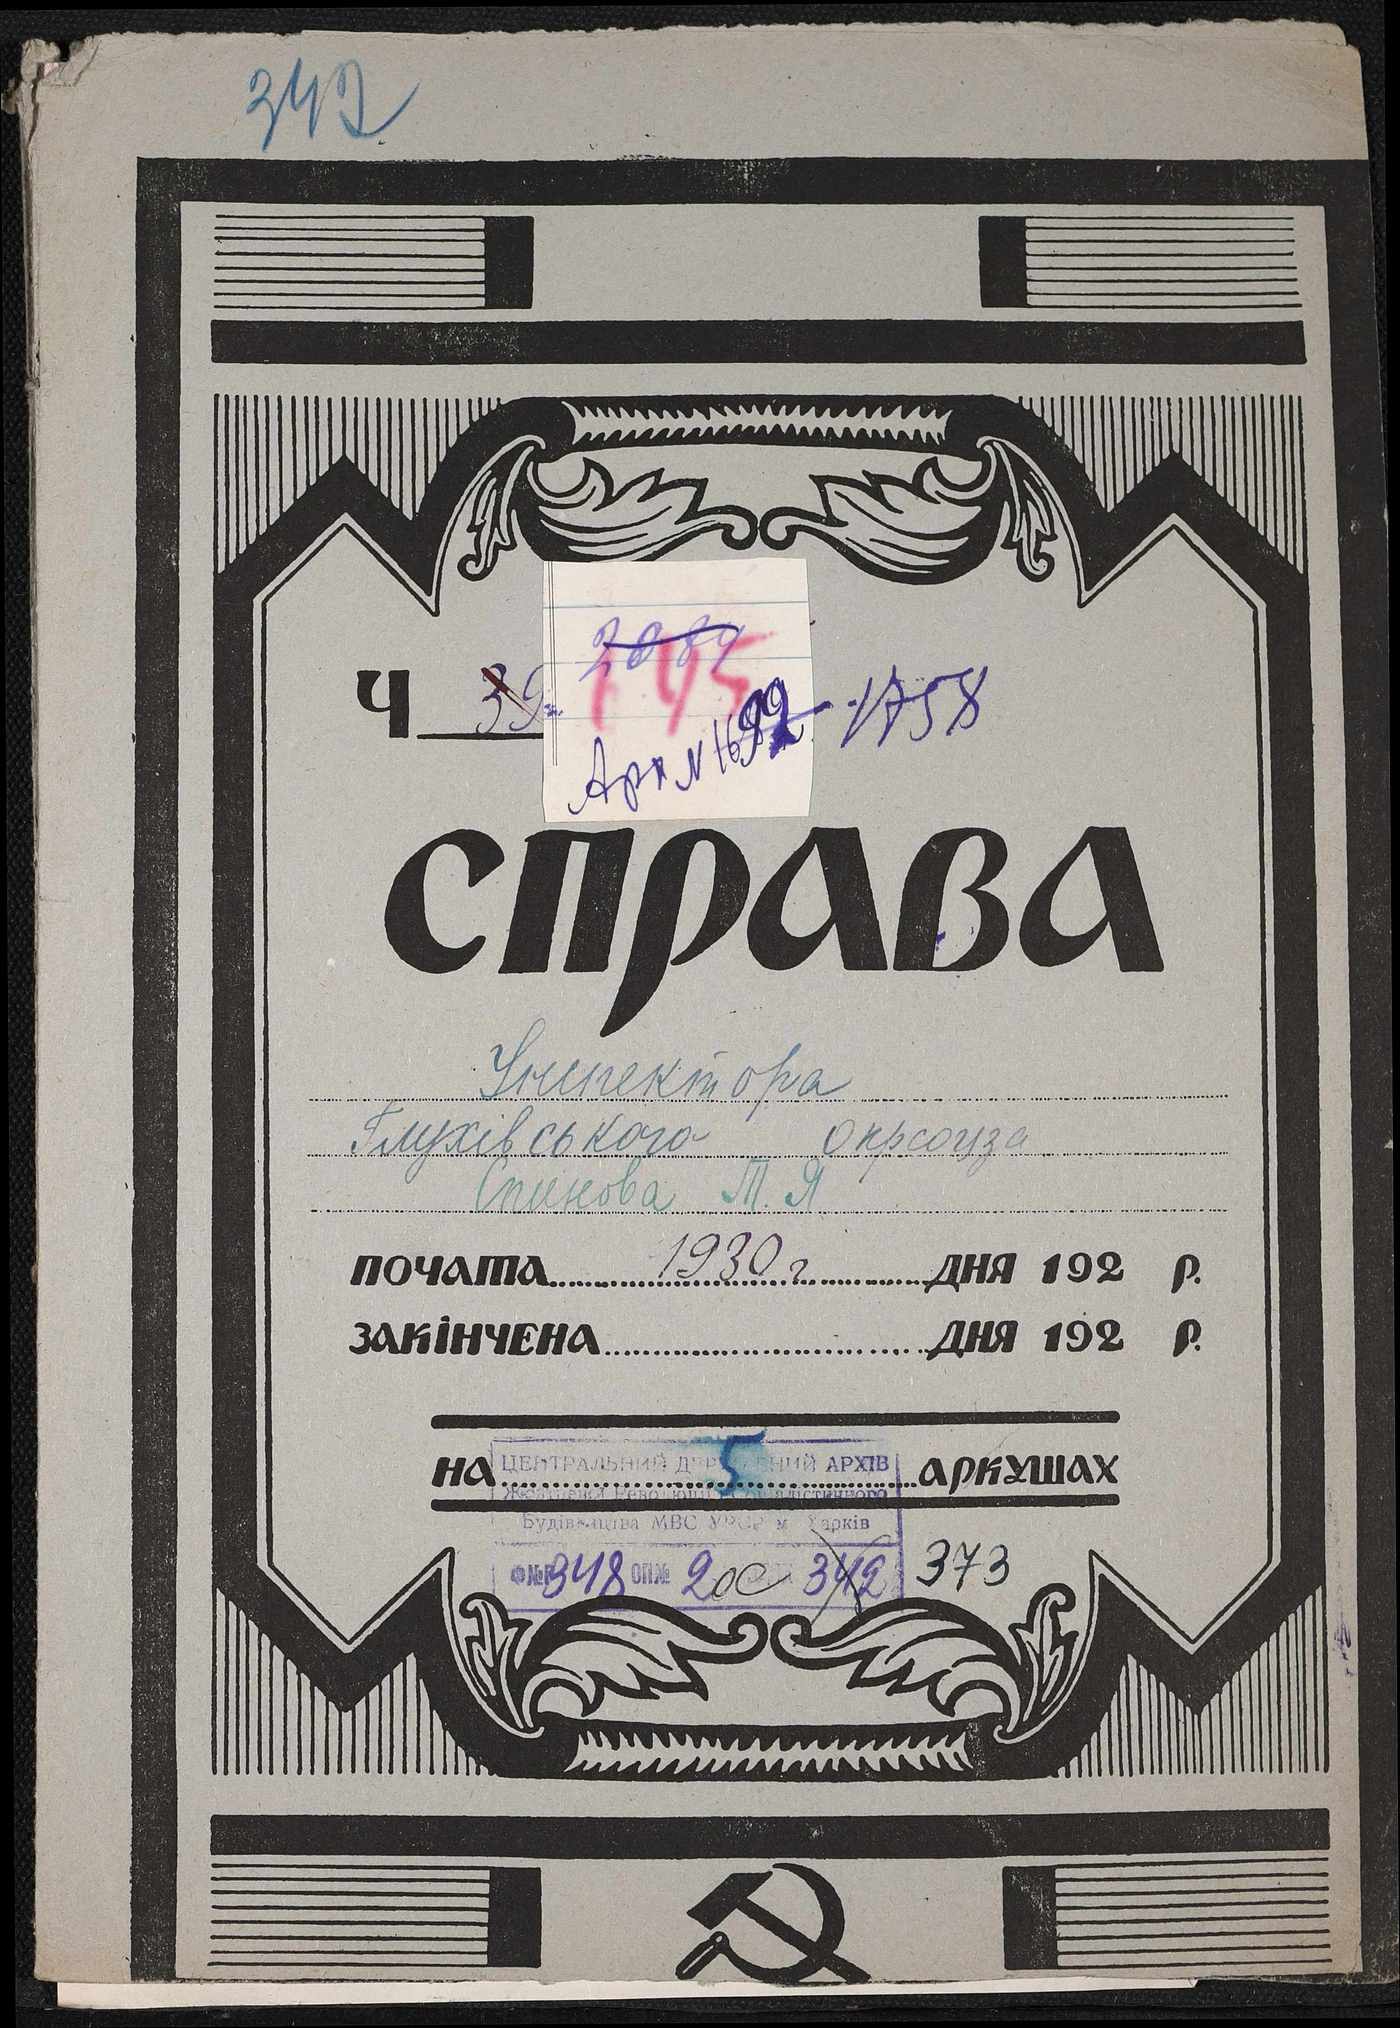 342
Ч 39
2084
145
Арх № 1692 - 1758
СПРАВА
Инспектора
Глухівського окрсоюза
Спинова Т. Я
ПОЧАТА 1930 г ДНЯ 192 Р.
ЗАКІНЧЕНА ДНЯ 192 Р.
НА 5 АРКУШАХ
ЦЕНТРАЛЬНИЙ ДЕРЖАВНИЙ АРХІВ
Жовтневої Революції Соціалістичного
Будівництва МВС УРСР м. Харків
Ф№ 348 ОП№ 2ос 342 373